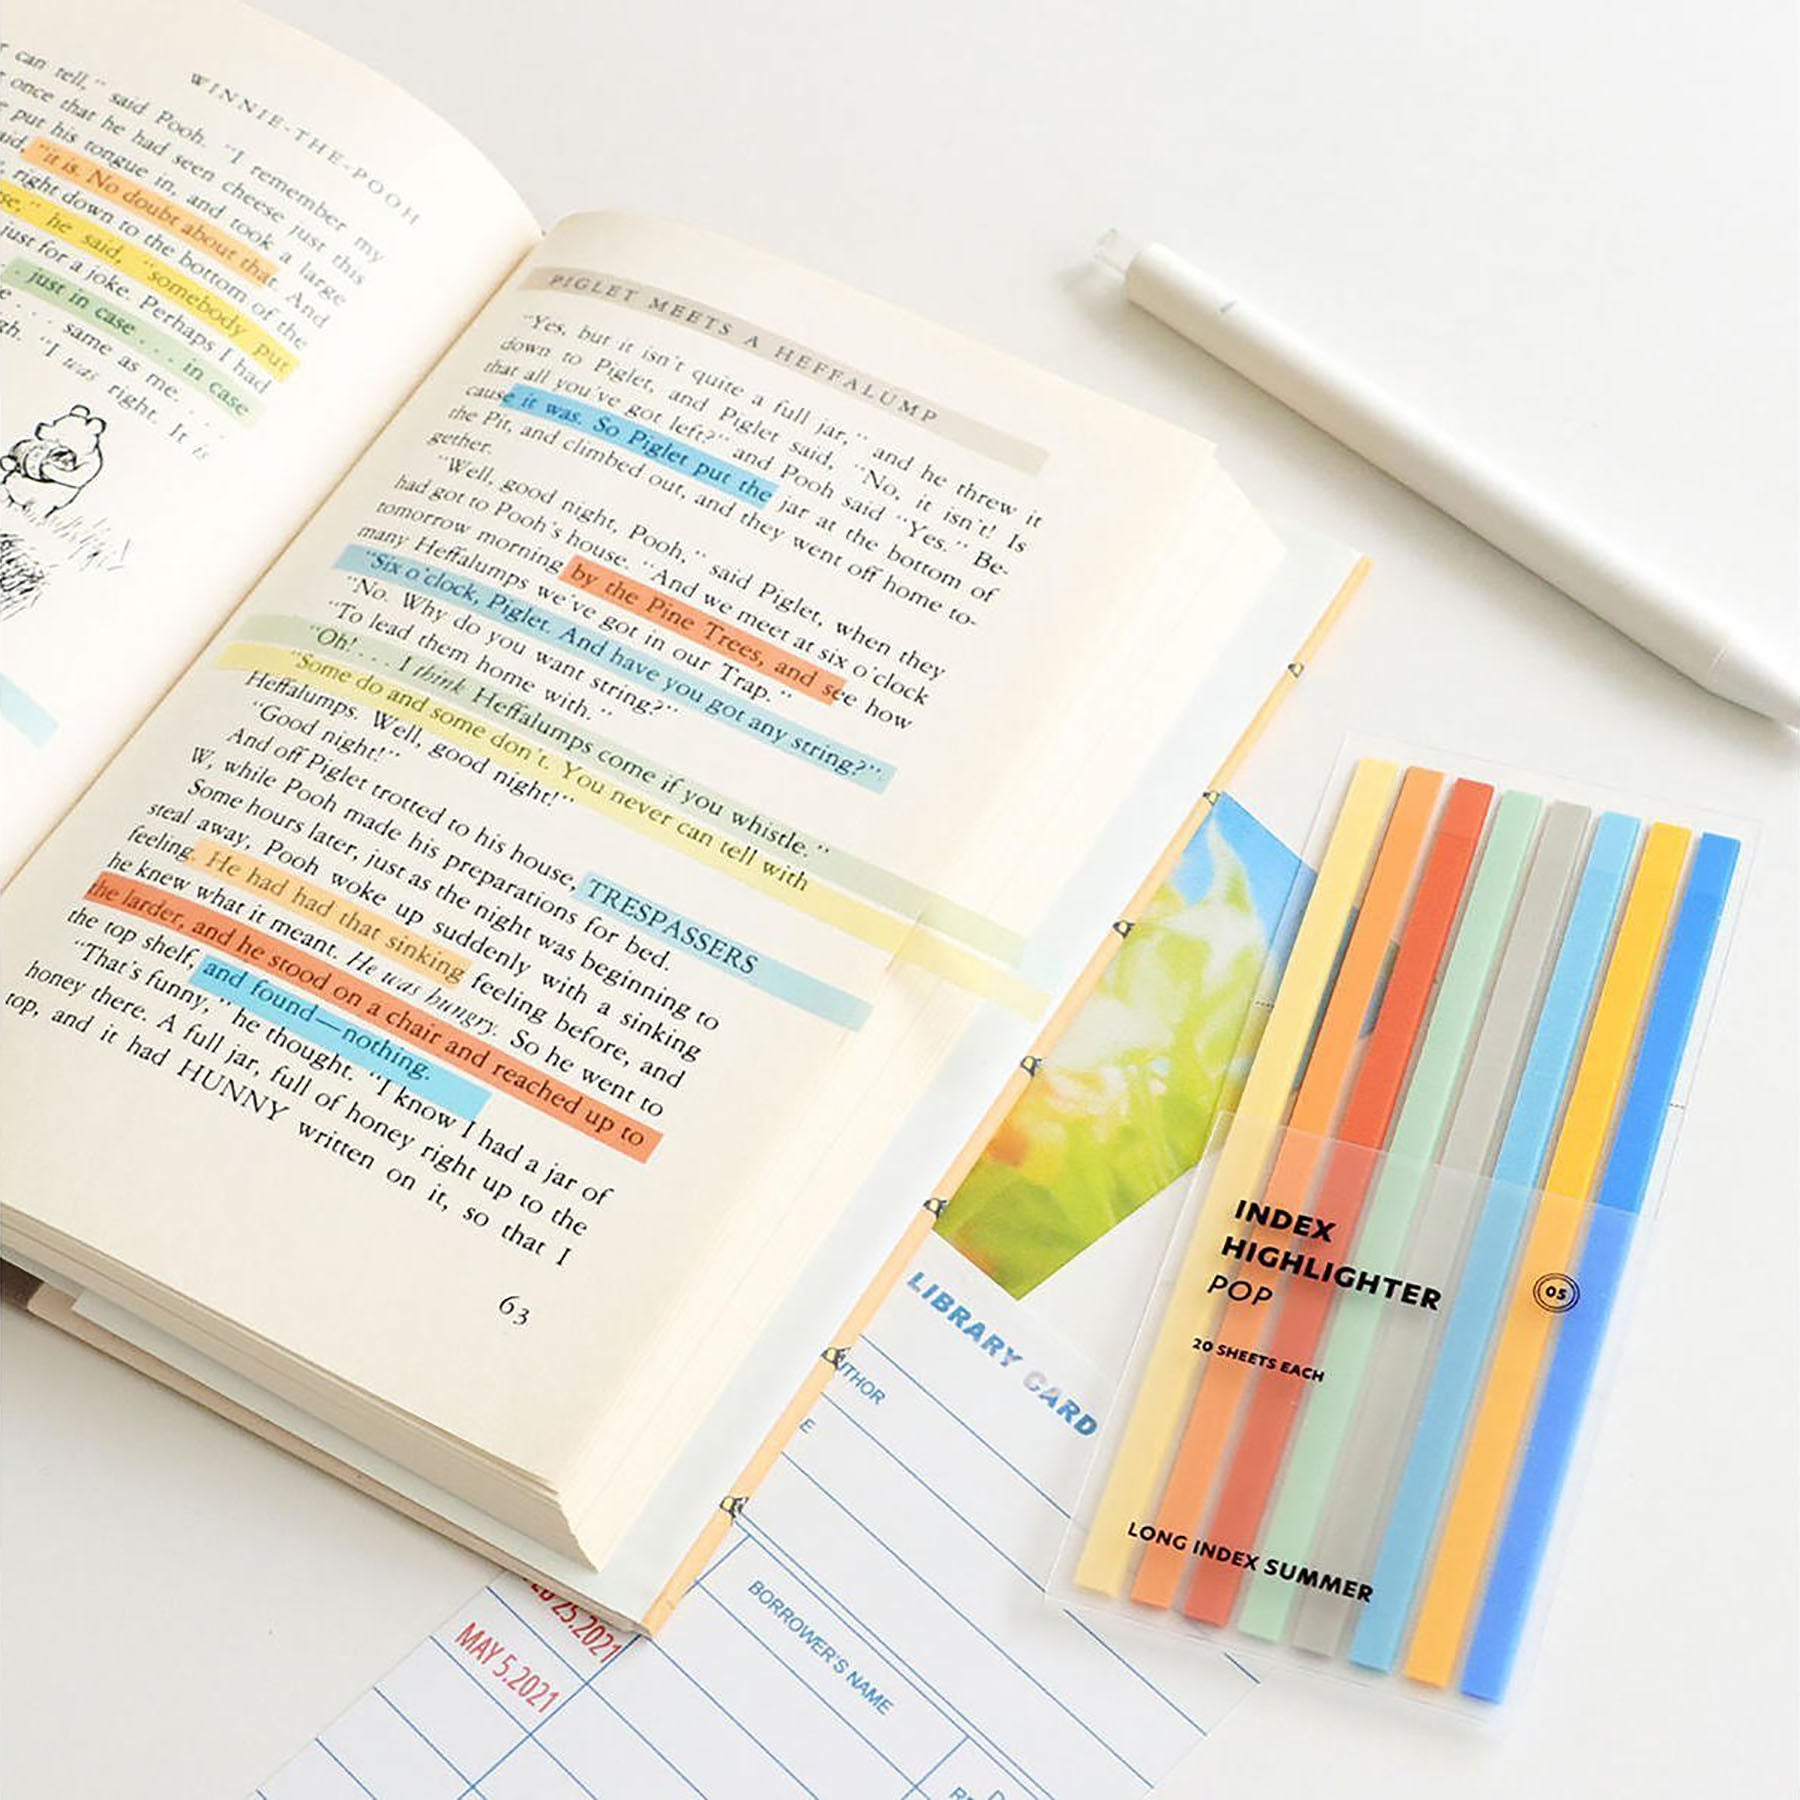 WINNIE-THE-POOH
can tell," said Pooh. "I remember my
once that he had seen cheese just this
put his tongue in, and took a large
"it is. No doubt about that. And
right down to the bottom of the
he said, "somebody put
just for a joke. Perhaps I had
. just in case . . . in case
. . . same as me. . . .
"I was right. It is
PIGLET MEETS A HEFFALUMP
"Yes, but it isn't quite a full jar," and he threw it
down to Piglet, and Piglet said, "No, it isn't! Is
that all you've got left?" and Pooh said "Yes." Be-
cause it was. So Piglet put the jar at the bottom of
the Pit, and climbed out, and they went off home to-
gether.
"Well, good night, Pooh," said Piglet, when they
had got to Pooh's house. "And we meet at six o'clock
tomorrow morning by the Pine Trees, and see how
many Heffalumps we've got in our Trap."
"Six o'clock, Piglet. And have you got any string?"
"No. Why do you want string?"
"To lead them home with."
"Oh! . . . I think Heffalumps come if you whistle."
"Some do and some don't. You never can tell with
Heffalumps. Well, good night!"
"Good night!"
And off Piglet trotted to his house, TRESPASSERS
W, while Pooh made his preparations for bed.
Some hours later, just as the night was beginning to
steal away, Pooh woke up suddenly with a sinking
feeling. He had had that sinking feeling before, and
he knew what it meant. He was hungry. So he went to
the larder, and he stood on a chair and reached up to
the top shelf, and found—nothing.
"That's funny," he thought. "I know I had a jar of
honey there. A full jar, full of honey right up to the
top, and it had HUNNY written on it, so that I
63
INDEX
HIGHLIGHTER
POP
05
20 SHEETS EACH
LONG INDEX SUMMER
LIBRARY CARD
THOR
E
BORROWER'S NAME
25.2021
MAY 5.2021